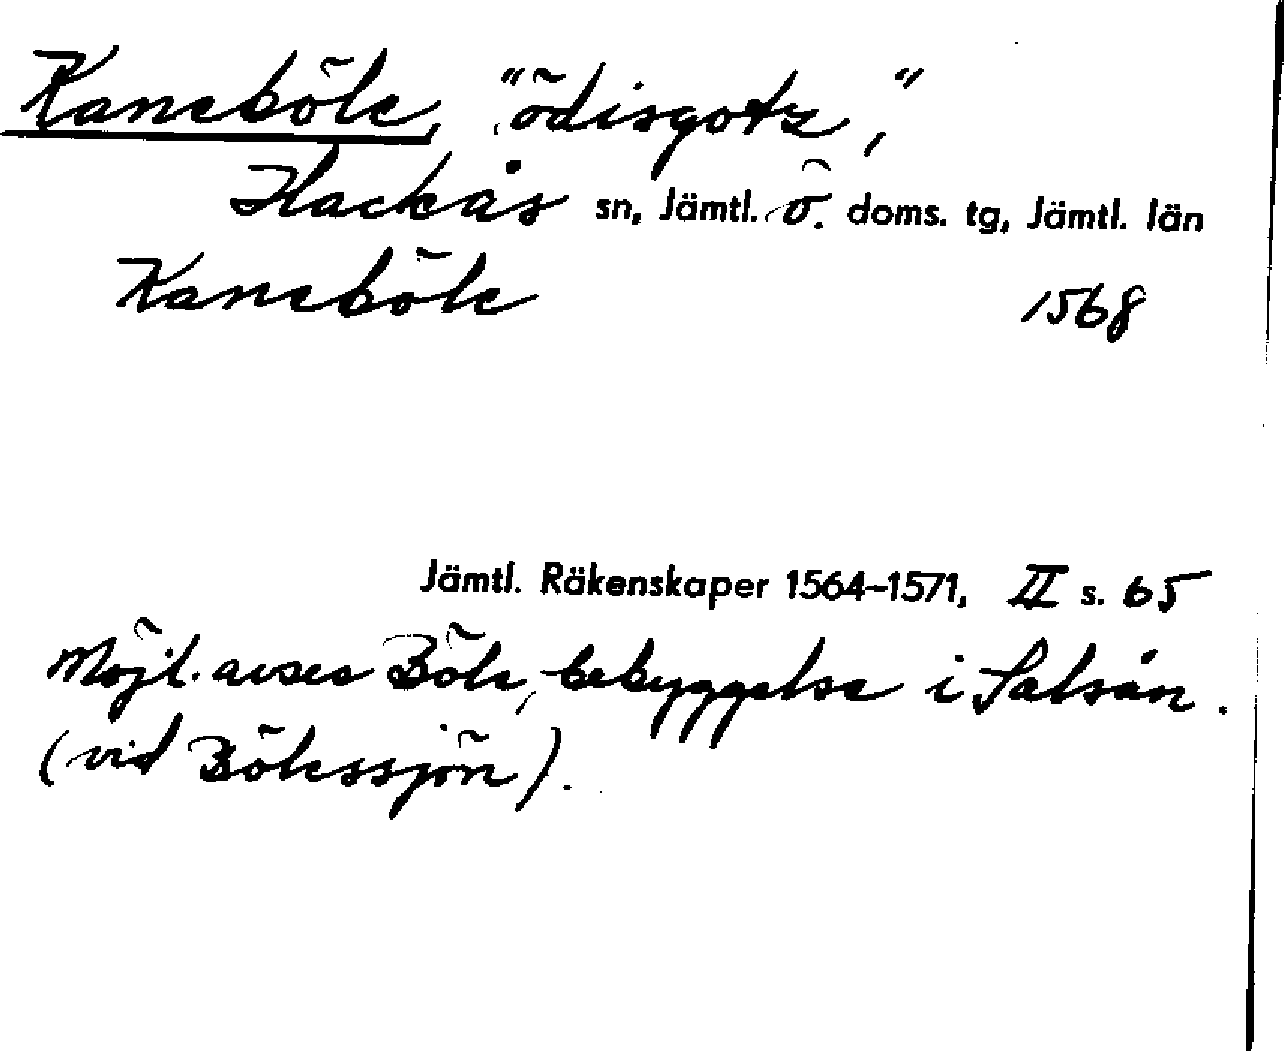 Kaneböle, "ödisgotz,"
Hackås sn, Jämtl. ö. doms. tg, Jämtl. län
Kaneböle 1568
Jämtl. Räkenskaper 1564-1571, II s. 65
Möjl. avses Böle, bebyggelse i Salsån.
(vid Bölessjön).